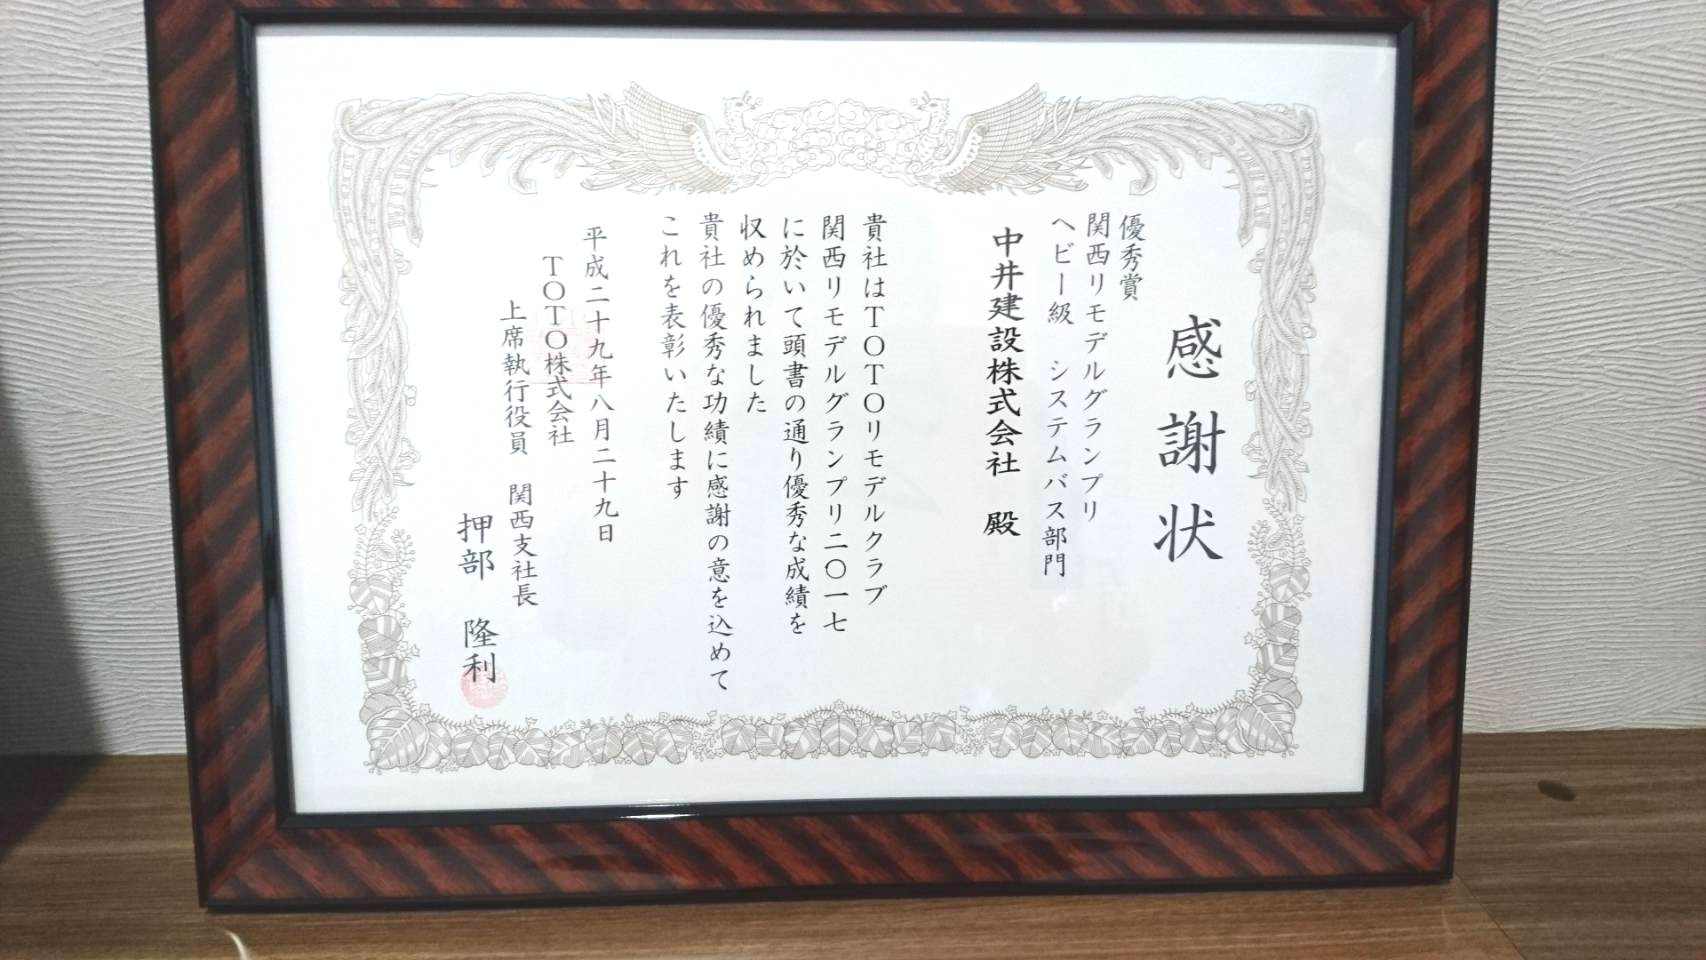 感謝状
優秀賞
関西リモデルグランプリ
ヘビー級 システムバス部門
中井建設株式会社 殿
貴社はTOTOリモデルクラブ
関西リモデルグランプリ二〇一七
に於いて頭書の通り優秀な成績を
収められました
貴社の優秀な功績に感謝の意を込めて
これを表彰いたします
平成二十九年八月二十九日
TOTO株式会社
上席執行役員 関西支社長
押部 隆利